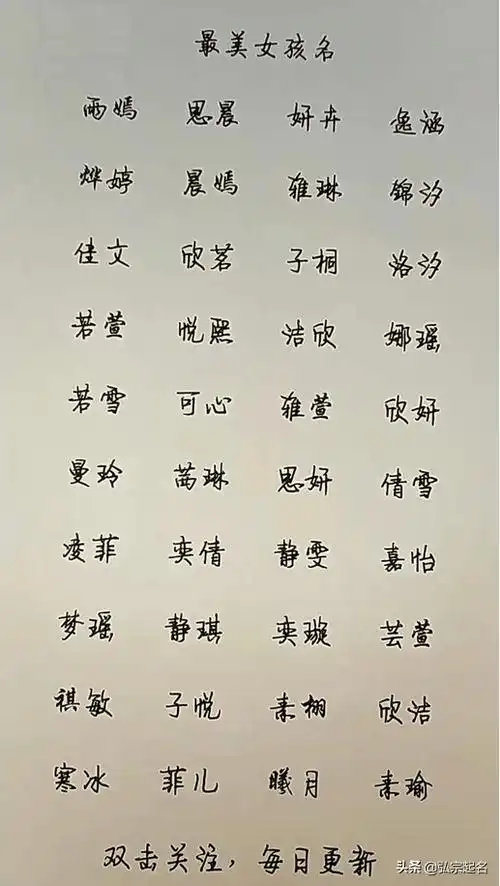 最美女孩名
雨嫣 思晨 妍卉 逸涵
烨婷 晨嫣 雅琳 锦汐
佳文 欣茗 子桐 洛汐
若萱 悦熙 洁欣 娜瑶
若雪 可心 雅萱 欣妍
曼玲 茜琳 思妍 倩雪
凌菲 奕倩 静雯 嘉怡
梦瑶 静琪 奕璇 芸萱
祺敏 子悦 素栩 欣洁
寒冰 菲儿 曦月 素瑜
双击关注，每日更新
头条@弘宗起名